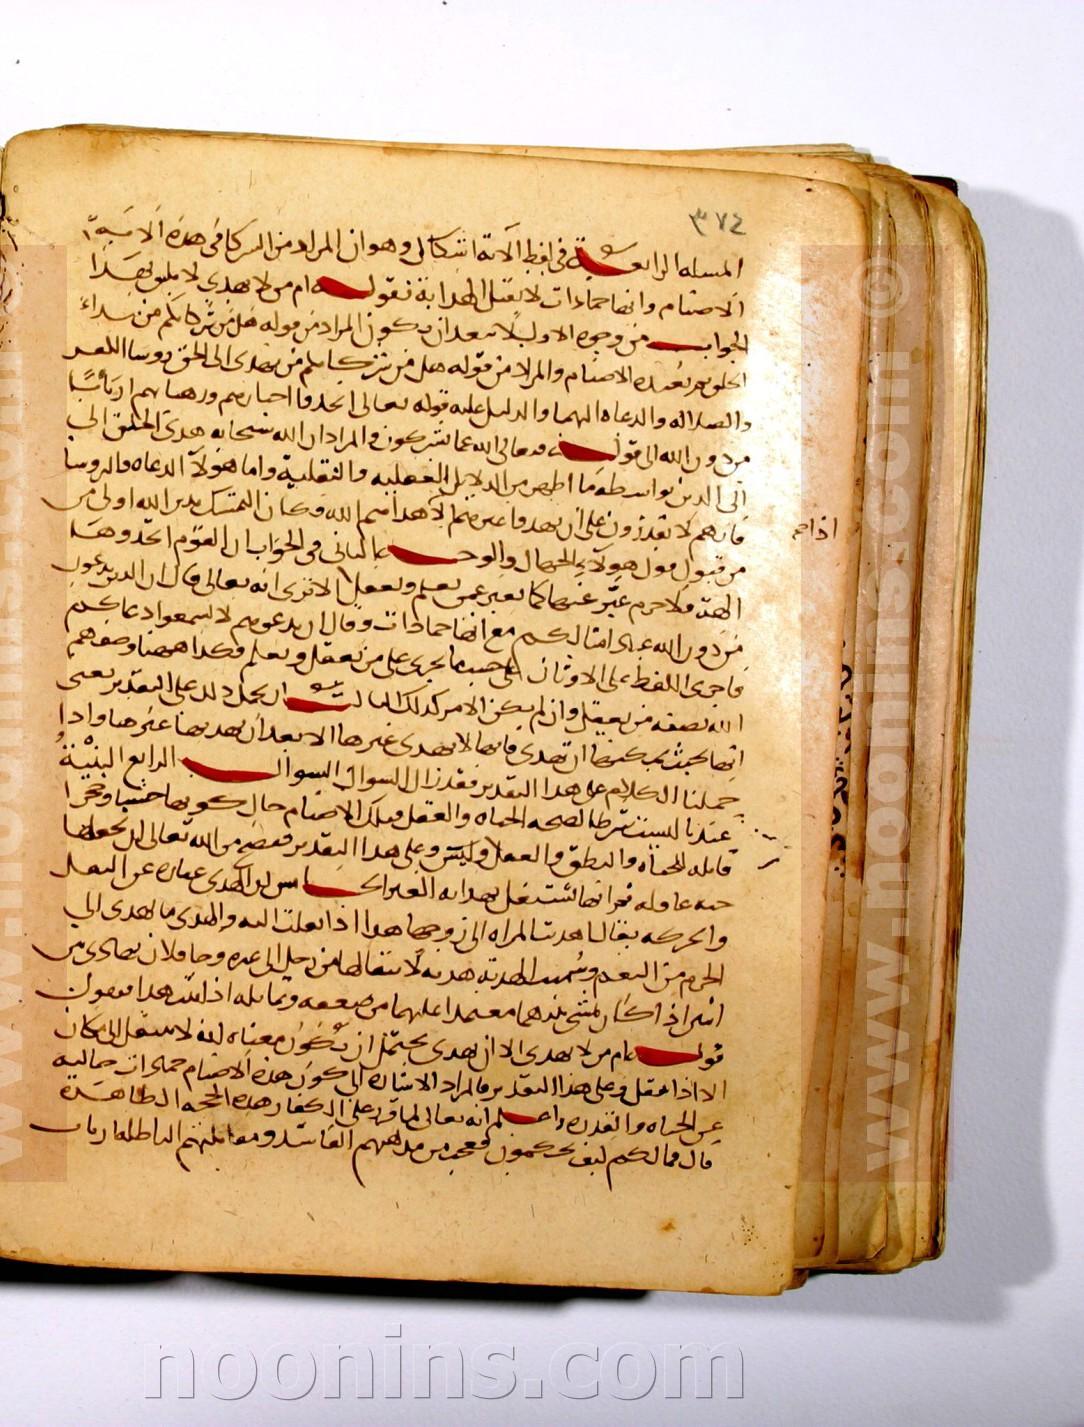 ٣٧٤
المسله الرابعة في لفظ الآية اشكال وهو ان المراد من الشركا في هذه الآية
الاصنام وانها جمادات لا تقبل الهداية فقوله ام من لا يهدي لا يليق بهذا
الجواب من وجوه الاول لا يبعد ان يكون المراد من قوله هل من شركائكم من يبداء
الخلق هو هذه الاصنام والمراد من قوله هل من شركايكم من يهدي الى الحق روسا الكفر
والضلاله والدعاه اليهما والدليل عليه قوله تعالى اتخذوا احبارهم ورهبانهم اربابا
من دون الله الى قوله تعالى الله عما يشركون والمراد ان الله سبحانه هدى الخلق الى
الى الدين بواسطة ما اظهر من الدلايل العقليه والنقلية واما هولا الدعاه والروسا
فانهم لا يقدرون على ان يهدوا غيرهم الا هداهم الله فكان التمسك بدين الله اولى من
من قبول قول هولاء الجهال والوجه الثاني في الجواب ان القوم اتخذوها
الهة فلا جرم عبر عنها كما يعبر عمن يعلم ويعقل الا ترى انه تعالى قال ان الذين يدعون
من دون الله عباد امثالكم مع انها جمادات وقال ان يدعوهم لا يسمعوا دعاكم
فاجرى اللفظ على الاوثان على حسب ما يجرى على من يعقل ويعلم فكذا ههنا وصفهم
الله بصفه من يعقل وان لم يكن الامر كذلك الثالث ان يحمل ذلك على التقدير يعني
انها بحيث يمكنها ان تهدي فانها لا تهدى غيرها الا بعد ان يهديها غيرها واذا
حملنا الكلام على هذا التقدير فقد زال السوال السوال الرابع البنية
عندنا ليست شرطا لصحه الحياه والعقل فتلك الاصنام حال كونها خشبا وحجرا
قابله للحياه والنطق والعقل وعلى هذا التقدير فيصح من الله تعالى ان يجعلها
حيه عاقله ثم انها تشتغل بهدايه الغير الخامس ان الهدى عباره عن النقل
والحركه يقال هديت المراه الى زوجها هدا اذا نقلت اليه والهدى ما يهدى الى
الحرم من النعم وسميت الهديه هديه لانتقالها من رجل الى غيره وجا فلان يهادى بين
اثنين اذا كان يمشى بينهما معتمدا عليهما من ضعفه وتمايله اذا ثبت هذا فنقول
قوله ام من لا يهدي الا ان يهدى يحتمل ان يكون معناه انه لا ينتقل الى مكان
الا اذا نقل وعلى هذا التقدير فالمراد الاشاره الى كون هذه الاصنام جمادات خاليه
عن الحياه والقدره واعلم انه تعالى لما قرر على الكفار هذه الحجه الظاهره
قال فما لكم كيف تحكمون تعجب من مذهبهم الفاسد ومقابلتهم الباطله ارباب
noonins.com
www.noonins.com ©